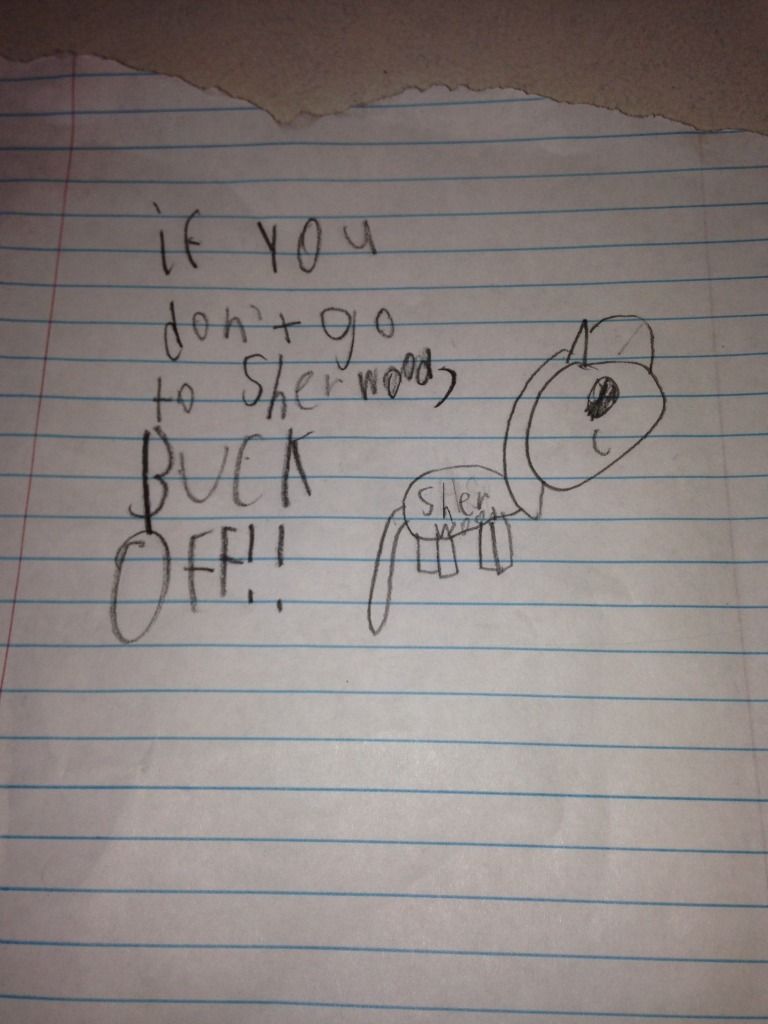 if you
don't go
to Sherwood,
BUCK
OFF!!
Sher
wood